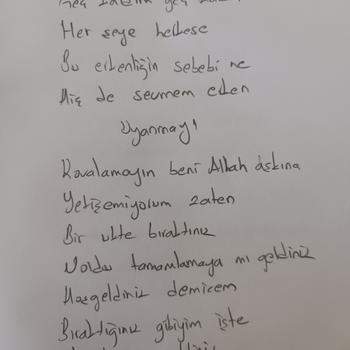 Her şeye herkese
Bu erkenliğin sebebi ne
Hiç de sevmem erken
Uyanmayı
Kovalamayın beni Allah aşkına
Yetişemiyorum zaten
Bir ukte bıraktınız
Noldu tamamlamaya mı geldiniz
Hoşgeldiniz demicem
Bıraktığınız gibiyim işte